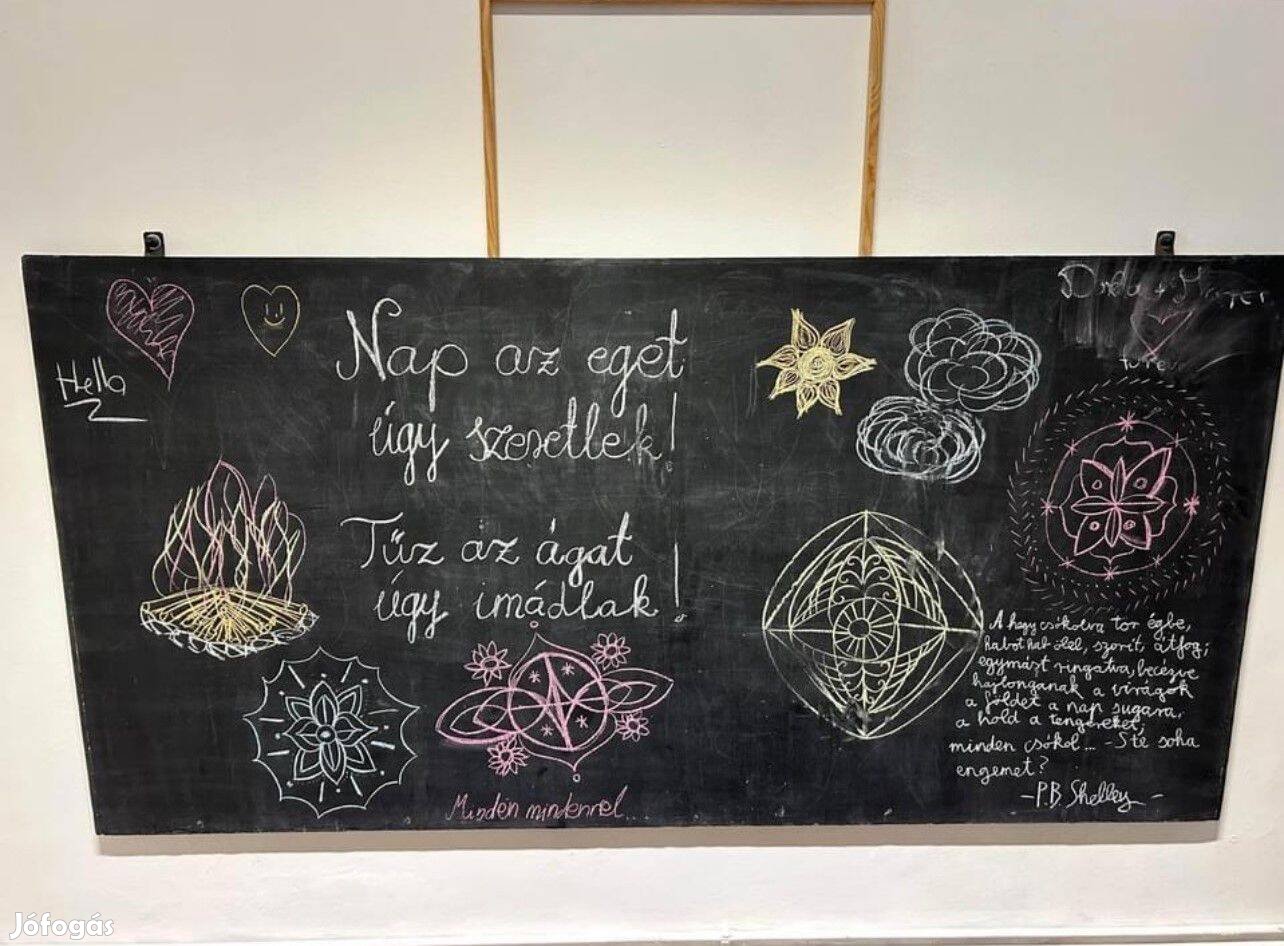 Hella
Nap az eget
úgy szeretlek!
Tűz az ágat
úgy imádlak!
Minden mindennel...
A hegy csókolva tör égbe,
habot hab ölel, szorít, átfog;
egymást ringatva, becézve
hajlonganak a virágok
a földet a nap sugara,
a hold a tengereket,
minden csókol... -S te soha
engemet?
-P.B. Shelley-
Jófogás